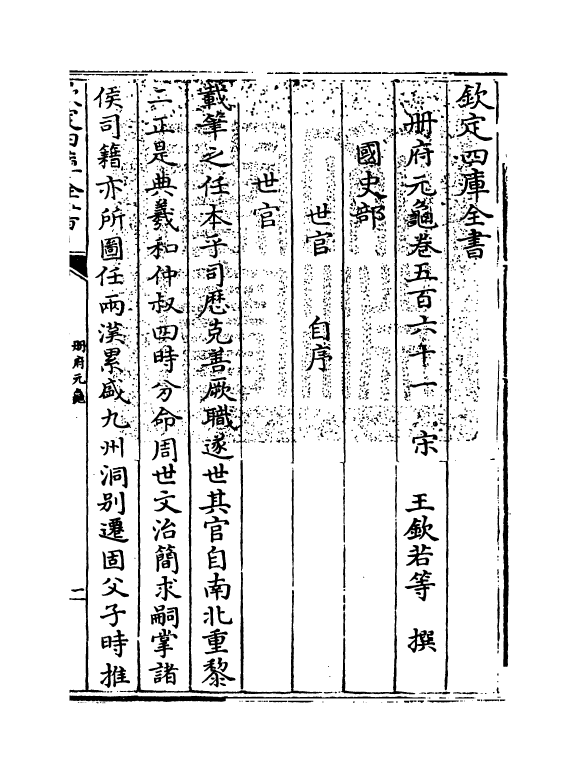 欽定四庫全書
冊府元龜卷五百六十一　宋　王欽若等　撰
國史部
世官　自序
世官
載筆之任本乎司厯克善厥職遂世其官自南北重黎
二正是典羲和仲叔四時分命周世文治簡求嗣掌諸
侯司籍亦所圖任兩漢累盛九州洞别遷固父子時推
欽定四庫全書
冊府元龜
二